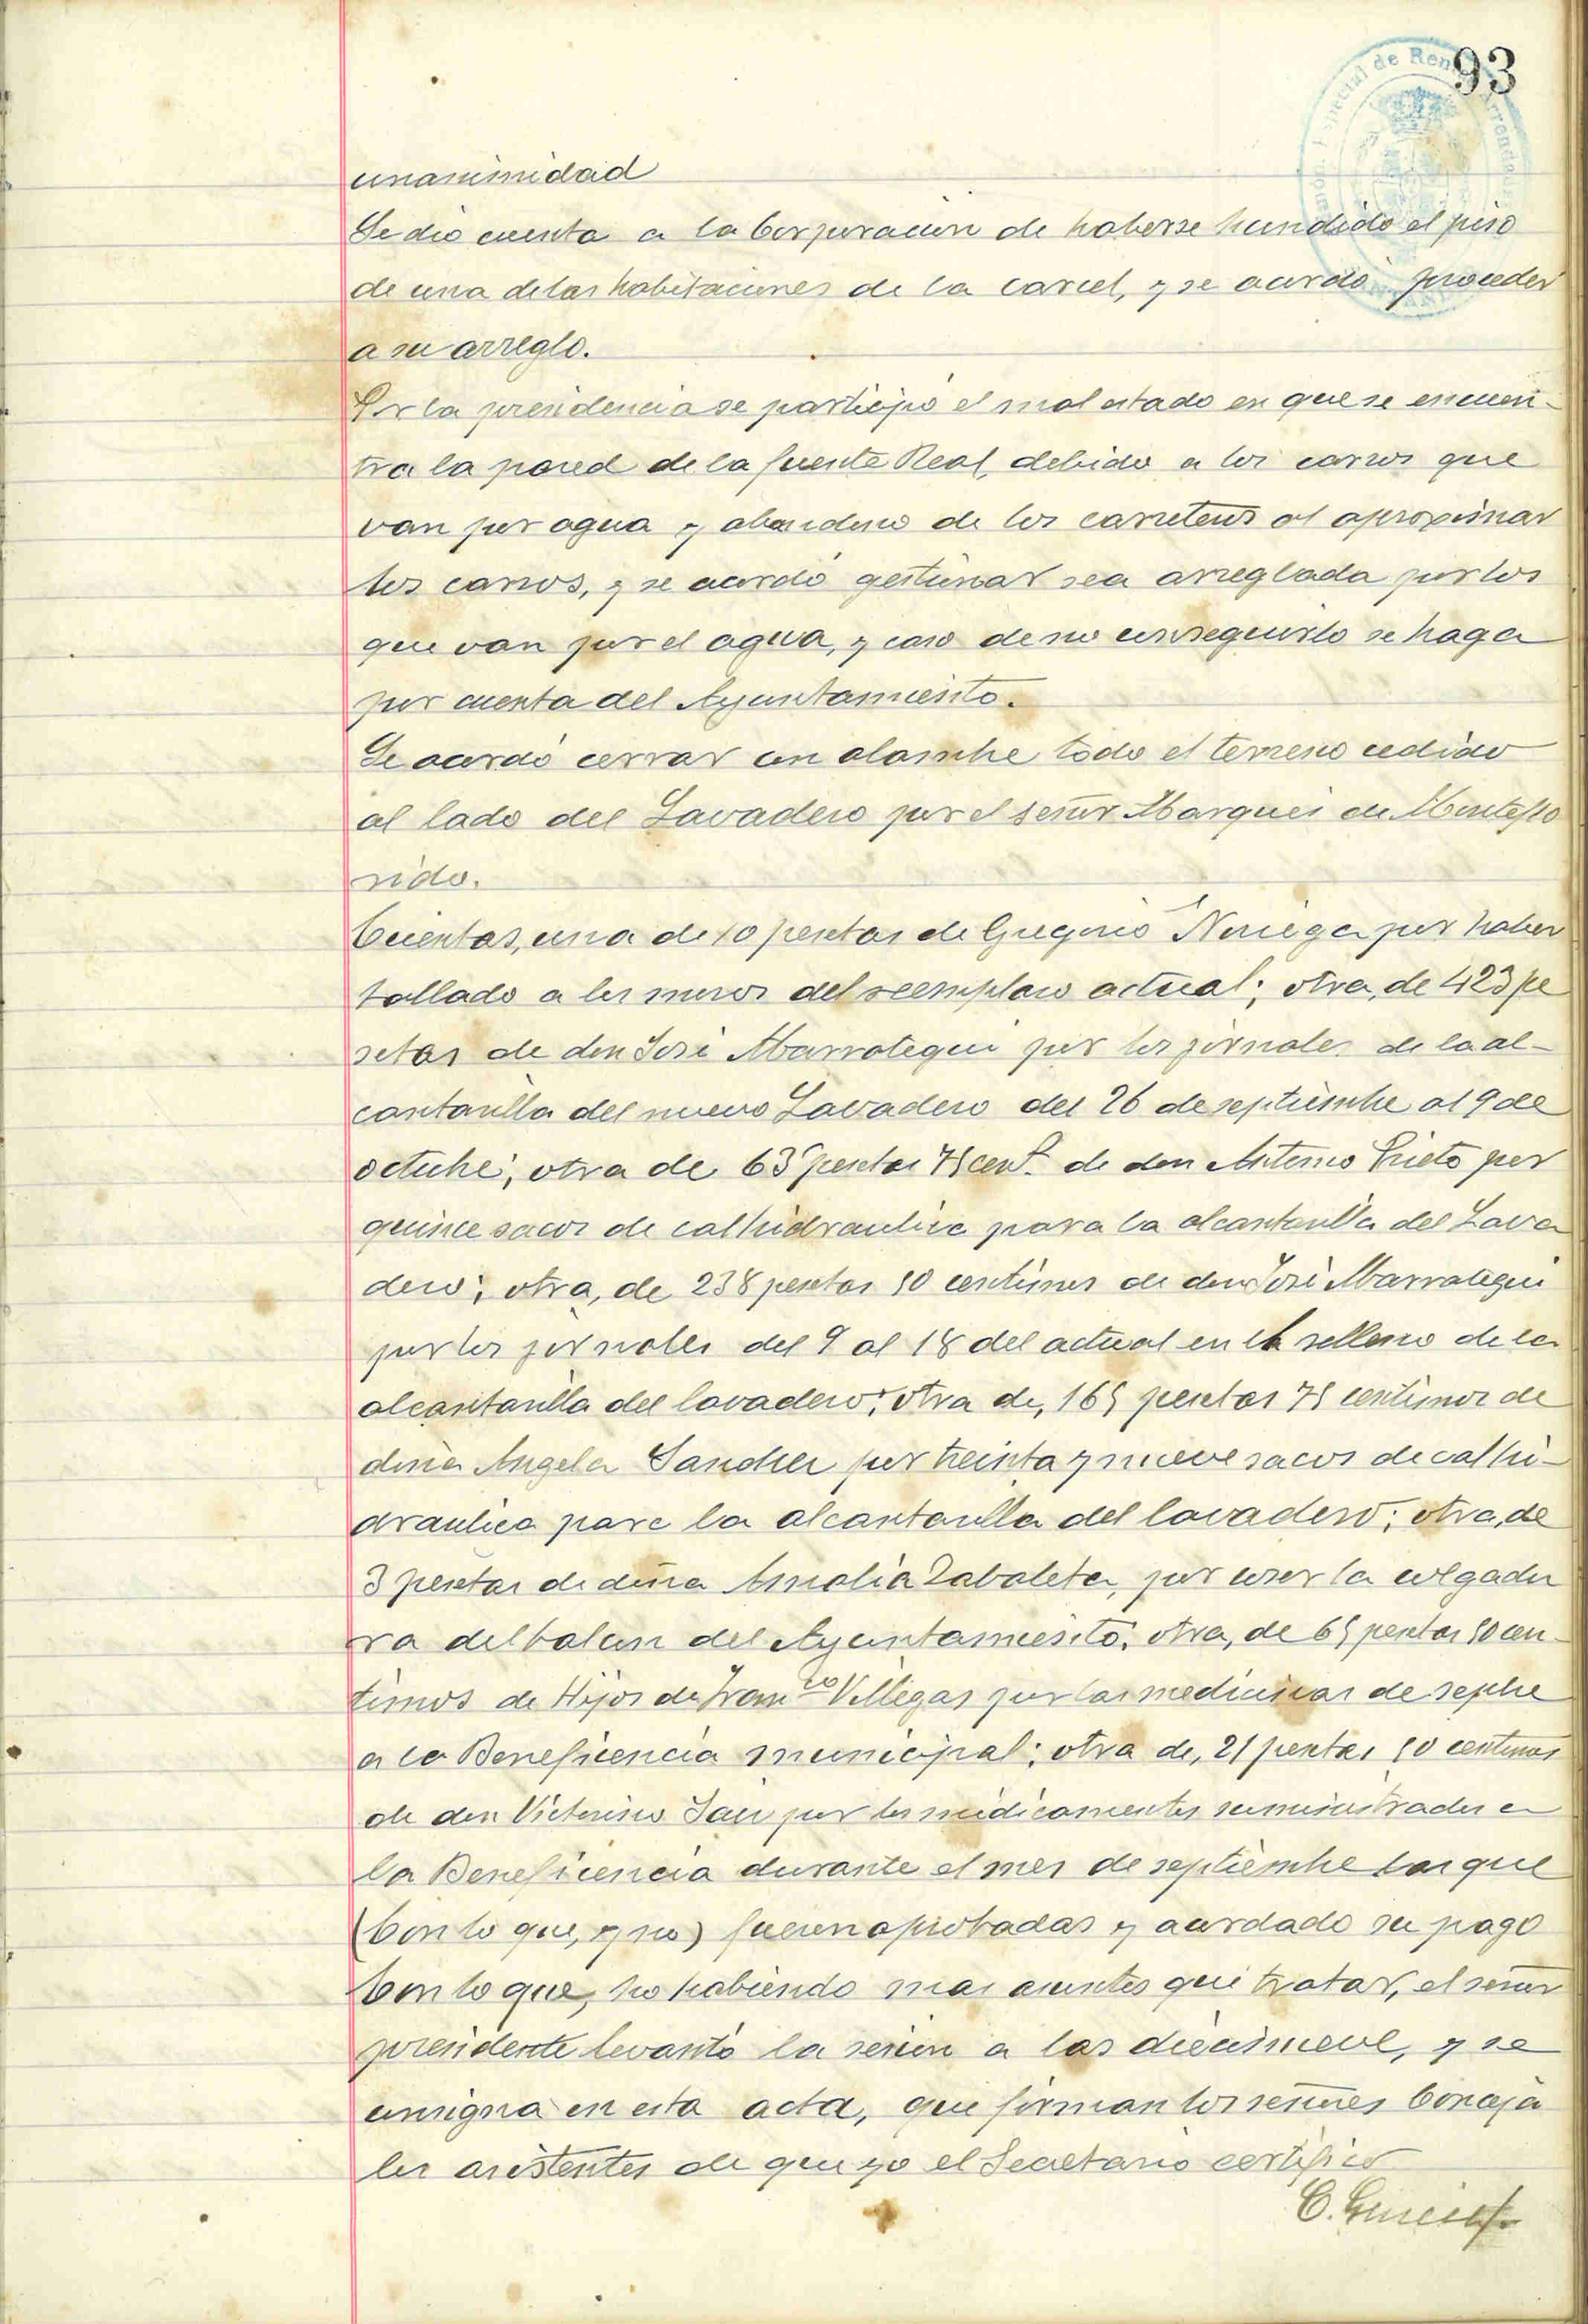 93
unanimidad
Se dió cuenta a la Corporacion de haberse hundido el piso
de una de las habitaciones de la carcel, y se acordó proceder
a su arreglo.
Por la presidencia se participó el mal estado en que se encuen-
tra la pared de la fuente Real, debido a los carros que
van por agua y abandono de los carreteros al aproximar
los carros, y se acordó gestionar sea arreglada por los
que van por el agua, y caso de no conseguirlo se haga
por cuenta del Ayuntamiento.
Se acordó cerrar con alambre todo el terreno cedido
al lado del Lavadero por el señor Marques de Monteflo
rido.
Cuentas, una de 10 pesetas de Gregorio Noriega por haber
tallado a los mozos del reemplazo actual; otra, de 423 pe
setas de don José Marrategui por los jornales de la al-
cantarilla del nuevo Lavadero del 26 de septiembre al 9 de
octubre; otra de 63 pesetas 75 cent.s de don Antonio Prieto por
quince sacos de cal hidraulica para la alcantarilla del Lava
dero; otra, de 238 pesetas 50 centimos de don José Marrategui
por los jornales del 9 al 18 del actual en el relleno de la
alcantarilla del lavadero; otra de, 165 pesetas 75 centimos de
doña Angela Sanchez por treinta y nueve sacos de cal hi-
draulica para la alcantarilla del lavadero; otra, de
3 pesetas de doña Amalia Zabaleta, por coser la colgadu
ra del balcon del Ayuntamiento; otra, de 65 pesetas 50 cen-
timos de Hijos de Franco Villegas por las medicinas de sepbre
a la Beneficencia municipal; otra de, 21 pesetas 50 centimos
de don Victorino por los medicamentos suministrados a
la Beneficencia durante el mes de septiembre las que
(Con lo que, y no) fueron aprobadas y acordado su pago
Con lo que, no habiendo mas asuntos que tratar, el señor
presidente levantó la sesion a las diecinueve, y se
consigna en esta acta, que firman los señores Conceja
les asistentes de que yo el Secretario certifico